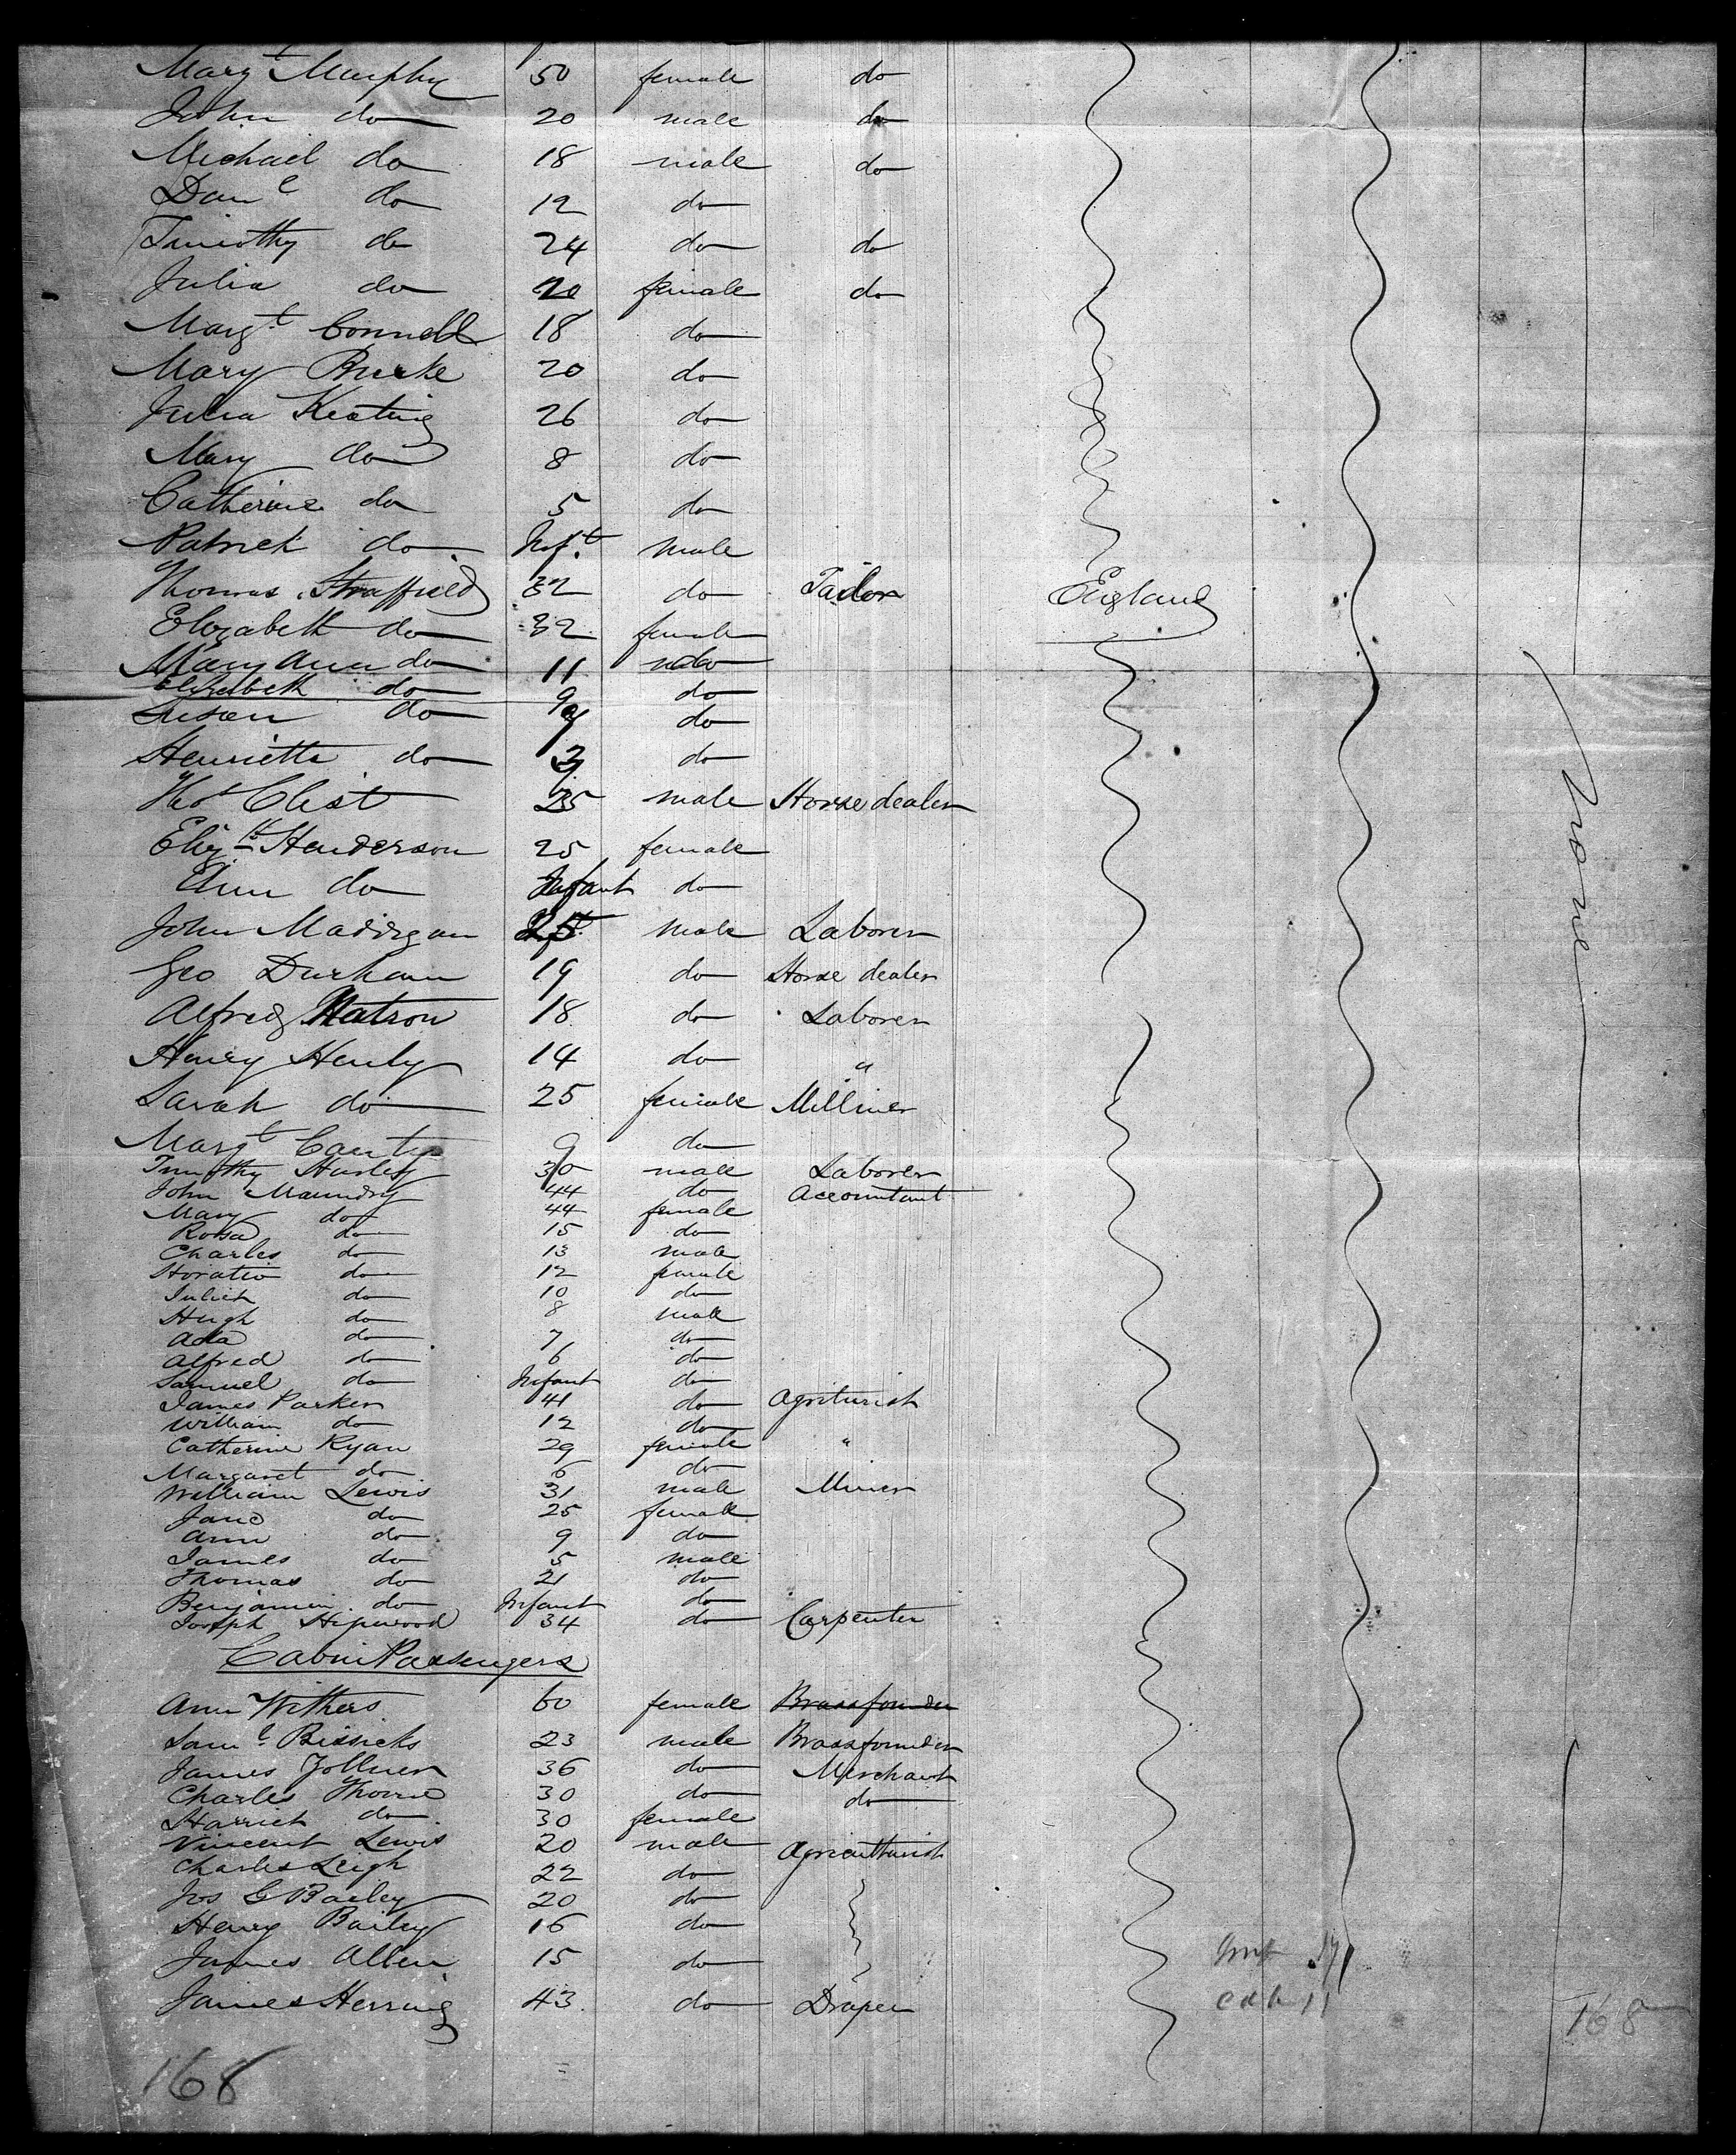 Margt Murphy 50 female do
John do 20 male do
Michael do 18 male do
Danl do 12 do
Timothy do 24 do do
Julia do 20 female do
Margt Connell 18 do
Mary Burke 20 do
Julia Keating 26 do
Mary do 8 do
Catherine do 5 do
Patrick do Inft male
Thomas Straffield 32 do Tailor England
Elizabeth do 32 female
Mary Ann do 11 do
Elizabeth do 9 do
Susan do 7 do
Henrietta do 3 do
Thos Clist 25 male Horse dealer
Elizth Henderson 25 female
Ann do Infant do
John Madigan male Laborer
Geo Durham 19 do Horse dealer
Alfred Watson 18 do Laborer
Henry Henly 14 do "
Sarah do 25 female Milliner
Margt Canty 9 do
Timothy Hurley 30 male Laborer
John Maundry 44 do Accountant
Mary do 44 female
Rosa do 15 do
Charles do 13 male
Horatio do 12 female
Juliet do 10 do
Hugh do 8 male
Ada do 7 do
Alfred do 6 do
Samuel do Infant do
James Parker 41 do Agriturist
William do 12 do
Catherine Ryan 29 female "
Margaret do 6 do
William Lewis 31 male Miner
Jane do 25 female
Ann do 9 do
James do 5 male
Thomas do 21 do
Benjamin do Infant do
Joseph Hipwood 34 do Carpenter
Cabin Passengers
Ann Withers 60 female Brassfounder
Saml Bissicks 23 male Brassfounder
James Jollner 36 do Merchant
Charles Thorne 30 do do
Harriet do 30 female
Vincent Lewis 20 male Agriculturist
Charles Leigh 22 do
Jos G Bailey 20 do
Henry Bailey 16 do
James Allen 15 do
James Herring 43 do Draper
None
168
168